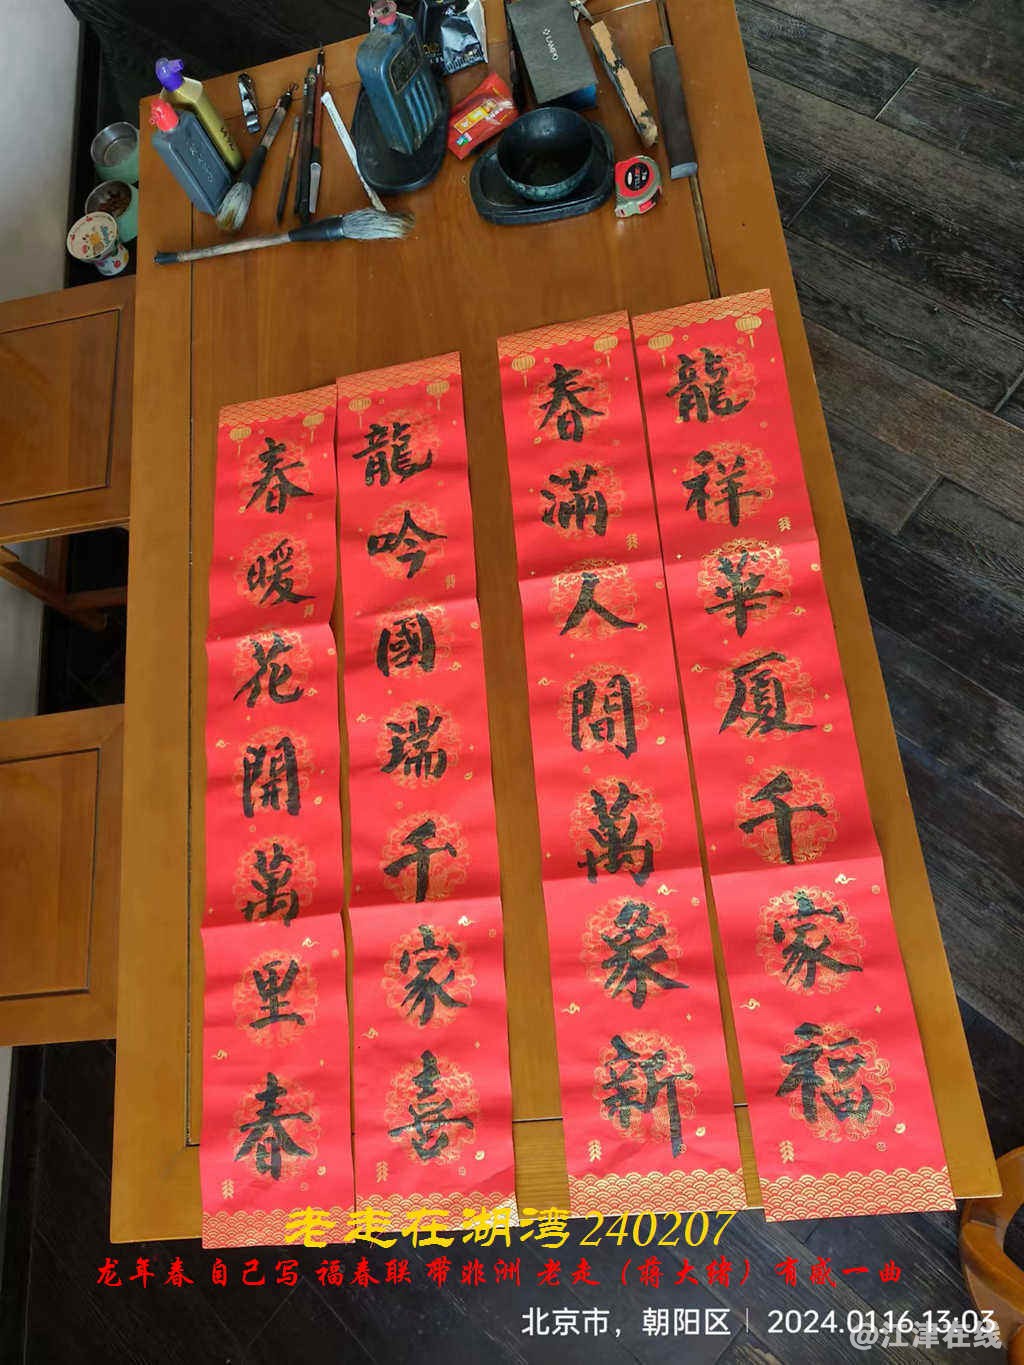 LAMPO
龍祥華厦千家福
春滿人間萬象新
龍吟國瑞千家喜
春暖花開萬里春
老走在湖湾240207
龙年春 自己写 福春联 带非洲 老走（蒋大绪）有感一曲
北京市，朝阳区 | 2024.01.16 13:03
@江津在线